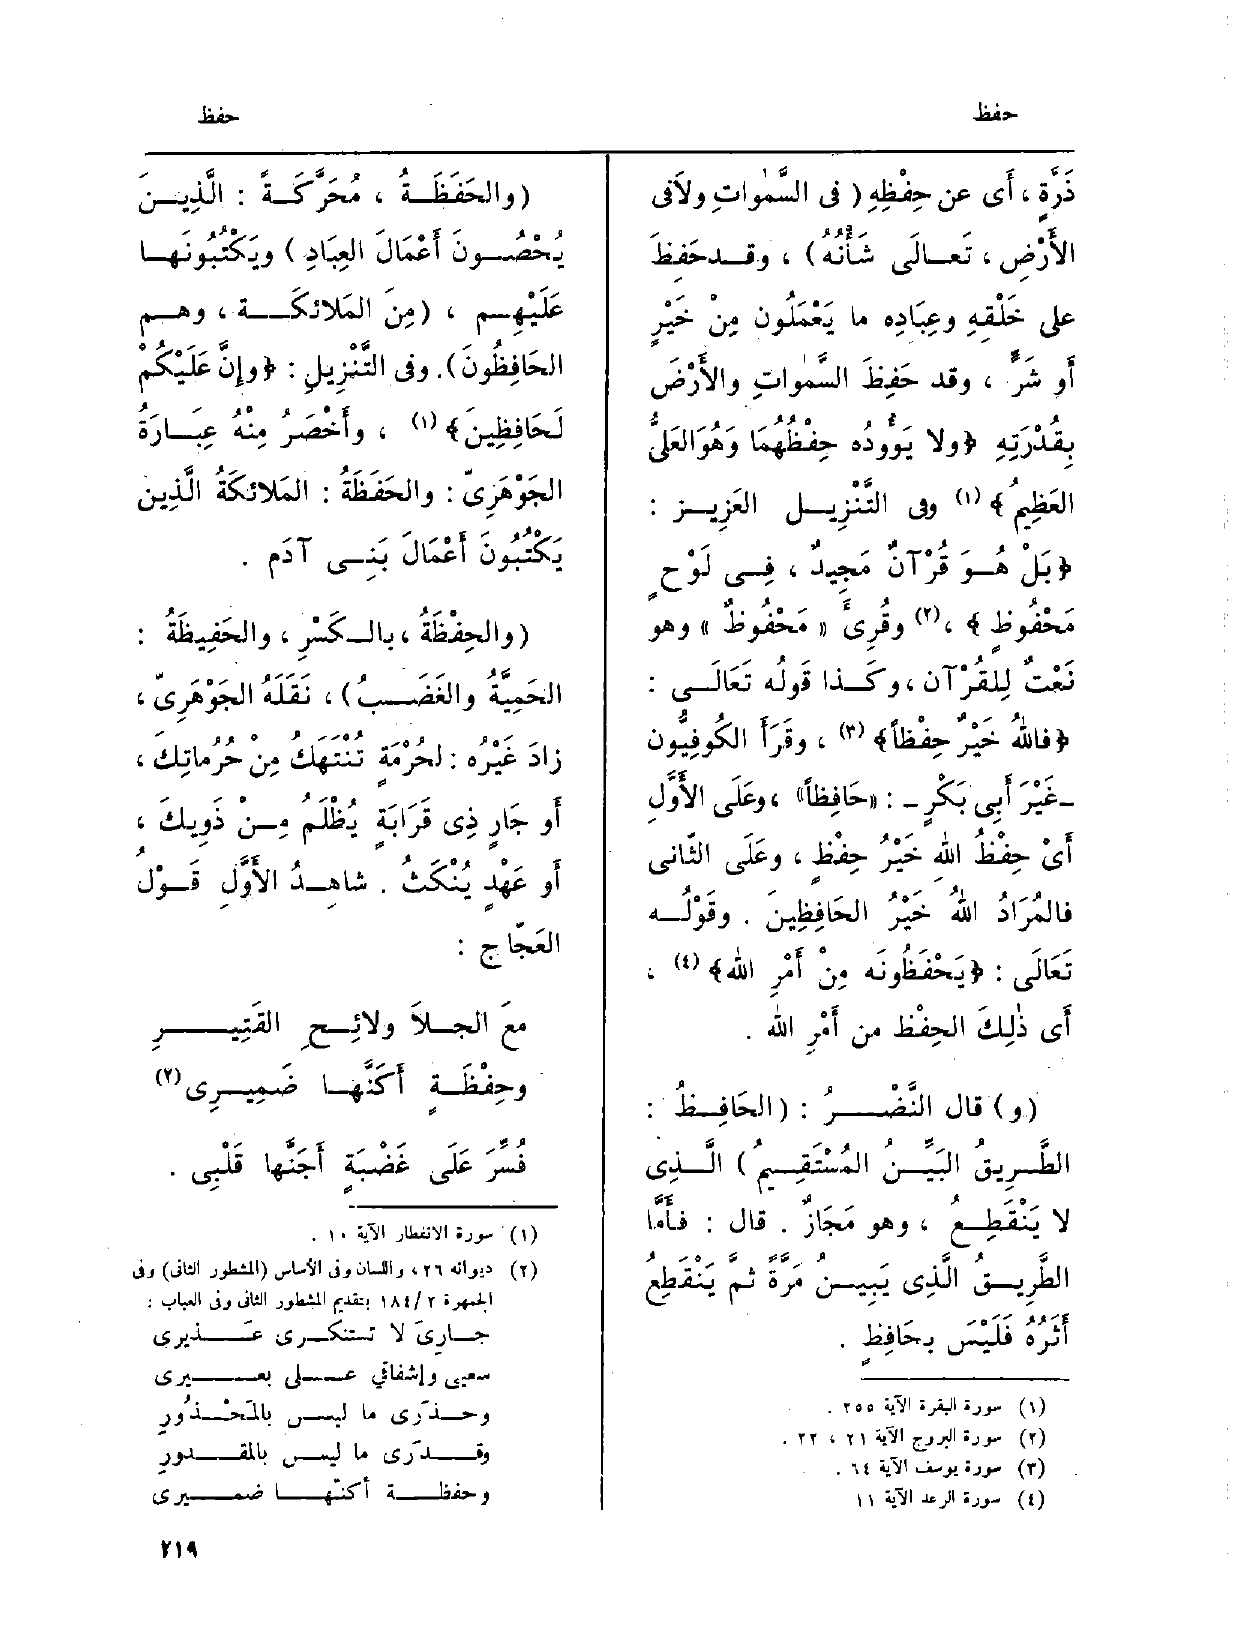 حفظ
حفظ
ذَرَّةٍ ، أى عن حِفْظِهِ ( فى السَّمٰواتِ ولاَفى
الأَرْضِ ، تَعــالَى شَأْنُهُ ) ، وقــد حَفِظَ
على خَلْقِهِ وعِبَادِه ما يَعْمَلُون مِنْ خَيْرٍ
أو شَرٍّ ، وقد حَفِظَ السَّمٰواتِ والأَرْضَ
بِقُدْرَتِهِ ﴿ولا يَؤُودُه حِفْظُهُمَا وَهُوَ العَلِىُّ
العَظِيمُ﴾ (١) وفى التَّنْزِيــلِ العَزِيــزِ :
﴿بَلْ هُــوَ قُرْآنٌ مَجِيدٌ ، فِــى لَوْحٍ
مَحْفُوظٍ ﴾ ،(٢) وقُرِئَ « مَحْفُوظٌ » وهو
نَعْتٌ لِلقُرْآن ، وكَــذا قولُه تَعَالَــى :
﴿فاللهُ خَيْرٌ حِفْظاً﴾ (٣) ، وقَرَأَ الكُوفِيُّون
-غَيْرَ أَبِى بَكْرٍ - : «حَافِظاً» ، وعَلَى الأَوَّلِ
أَىْ حِفْظُ اللهِ خَيْرُ حِفْظٍ ، وعَلَى الثّانى
فالمُرَادُ اللهُ خَيْرُ الحَافِظِينَ . وقَوْلُــه
تَعَالَى : ﴿يَحْفَظُونَه مِنْ أَمْرِ اللهِ﴾ (٤) ،
أى ذٰلِكَ الحِفْظ من أَمْرِ اللهِ .
(و) قال النَّضْــرُ : (الحَافِــظُ :
الطَّــرِيقُ البَيِّــنُ المُسْتَقِــيمُ ) الَّــذِى
لا يَنْقَطِــعُ ، وهو مَجَازٌ . قال : فأَمَّا
الطَّرِيــقُ الَّذِى يَبِيــنُ مَرَّةً ثُمَّ يَنْقَطِعُ
أَثَرُهُ فَلَيْسَ بِحَافِظٍ .
(١) سورة البقرة الآية ٢٥٥ .
(٢) سورة البروج الآية ٢١ ، ٢٢ .
(٣) سورة يوسف الآية ٦٤ .
(٤) سورة الرعد الآية ١١
(والحَفَظَــةُ ، مُحَرَّكَــةً : الَّذِيــنَ
يُحْصُــونَ أَعْمَالَ العِبَادِ ) ويَكْتُبُونَهــا
عَلَيْهِــم ، (مِنَ المَلائكَــة ، وهــم
الحَافِظُونَ). وفى التَّنْزِيلِ : ﴿وإِنَّ عَلَيْكُمْ
لَحَافِظِينَ﴾ (١) ، وأَخْصَرُ مِنْهُ عِبَــارَةُ
الجَوْهَرِىّ : والحَفَظَةُ : المَلائكَةُ الَّذِين
يَكْتُبُونَ أَعْمَالَ بَنِــى آدَم .
(والحِفْظَةُ ، بالــكَسْرِ ، والحَفِيظَةُ :
الحَمِيَّةُ والغَضَــبُ) ، نَقَلَهُ الجَوْهَرِىّ ،
زادَ غَيْرُه : لحُرْمَةٍ تُنْتَهَكُ مِنْ حُرُماتِكَ ،
أو جَارٍ ذِى قَرَابَةٍ يُظْلَمُ مِــنْ ذَوِيكَ ،
أو عَهْدٍ يُنْكَثُ . شاهِــدُ الأَوَّلِ قَــوْلُ
العَجّاجِ :
مَعَ الجَــلاَ ولائِــحِ القَتِيــــرِ
وحِفْظَــةٍ أَكَنَّهَــا ضَمِيــرِى (٢)
فُسِّرَ عَلَى غَضْبَةٍ أَجَنَّها قَلْبِى .
(١) سورة الانفطار الآية ١٠ .
(٢) ديوانه ٢٦ ، واللسان وفى الأساس (المشطور الثانى) وفى
الجمهرة ٢ /١٨٤ بتقديم المشطور الثانى وفى العباب :
جــارِىَ لا تــستنكــرى عَــــذيرى
سعيى وإشفاقي عــــلى بعــــيرى
وحــذَرى ما ليــس بالمَحْــذُورِ
وقــــدَرى ما ليــس بالمقــــدورِ
وحفظــــة أكنّهــــا ضمــــيرى
٢١٩